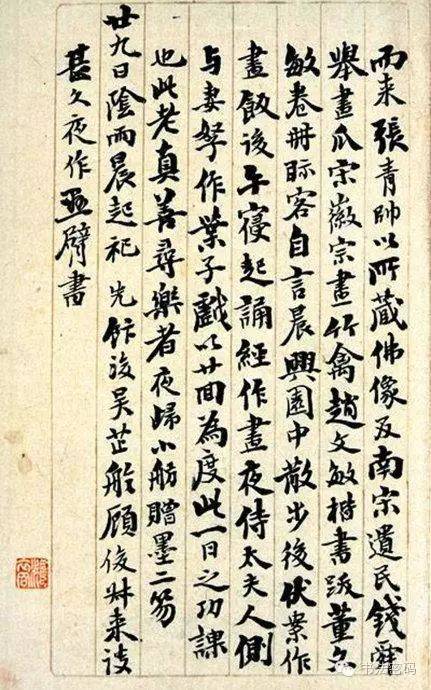 而来張青帥以所藏佛像及南宋遺民錢舜
舉畫瓜宋徽宗畫竹禽趙文敏楷書跋董文
敏卷冊眎客自言晨興園中散步後伏案作
畫飯後午寢起誦經作畫夜侍太夫人側
与妻孥作葉子戲以廿回為度此一日之功課
也此老真善尋樂者夜歸小舫贈墨二笏
廿九日陰雨晨起祀先飰後吴芷舲顧俊叔来談
甚久夜作書
书法密码